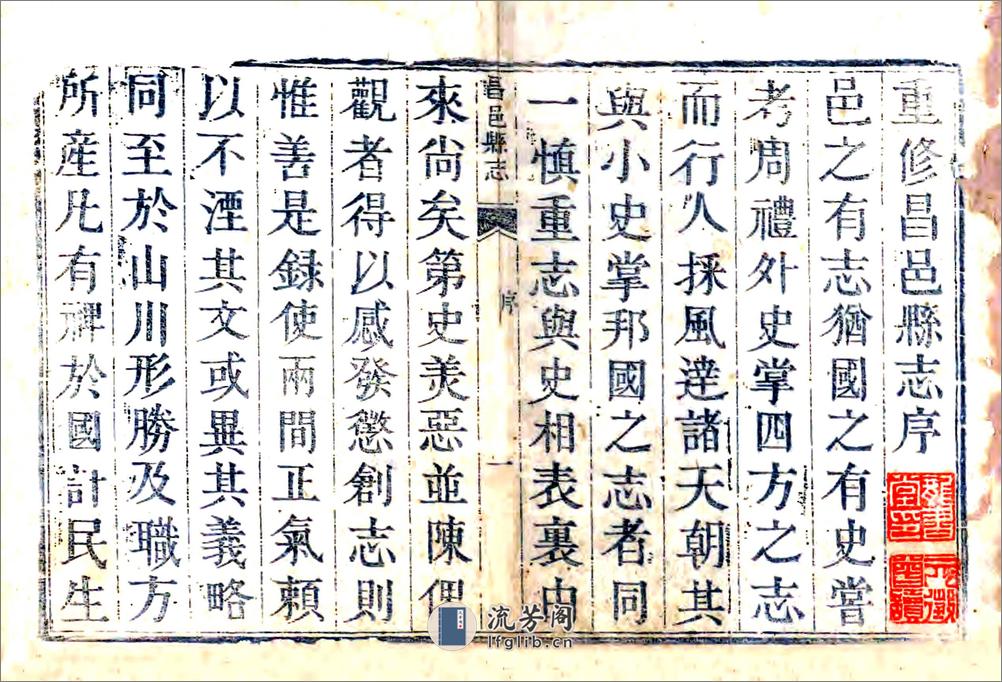 重修昌邑縣志序
邑之有志猶國之有史嘗
考周禮外史掌四方之志
而行人採風達諸天朝其
與小史掌邦國之志者同
一慎重志與史相表裏由
昌邑縣志 序 一
來尙矣第史美惡並陳俾
觀者得以感發懲創志則
惟善是録使兩間正氣頼
以不湮其文或異其義略
同至於山川形勝及職方
所産凡有裨於國計民生
流芳阁
lfglib.cn